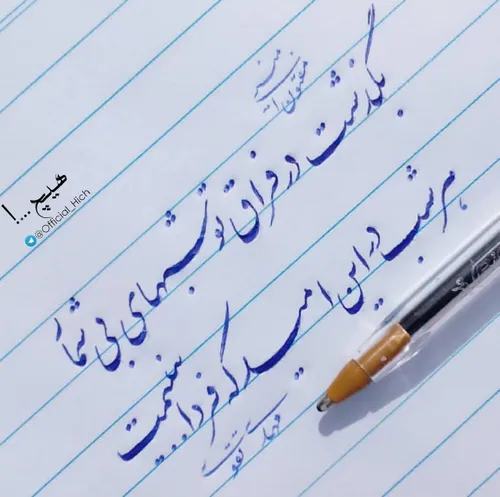 بگذشت در فراق تو شبهای بی شمار
هر شب در این امید که فردا ... ببینمت
هیچ ...!
@Official_Hich